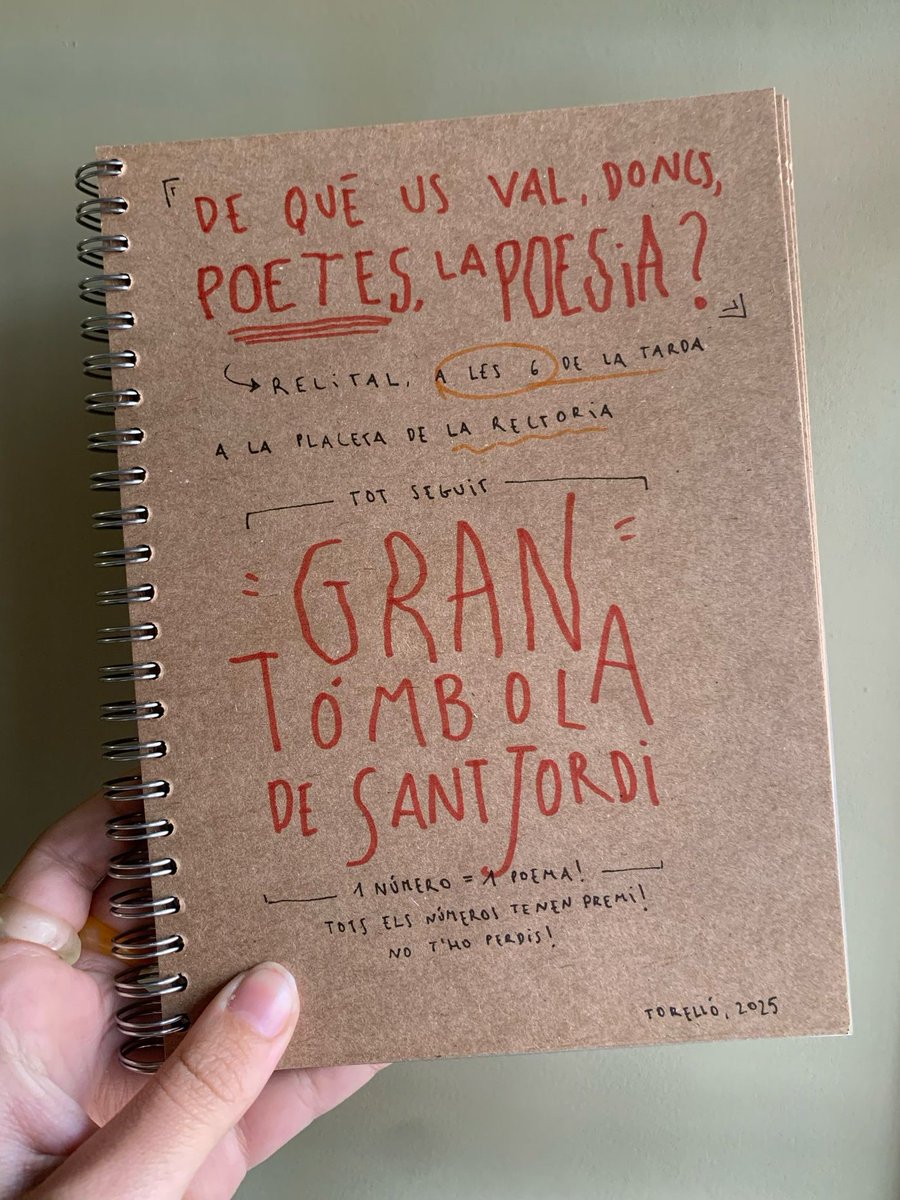 DE QUÈ US VAL, DONCS,
POETES, LA POESiA?
RECiTAL, A LES 6 DE LA TARDA
A LA PLACETA DE LA RECTORiA
TOT SEGUIT
GRAN
TÓMBOLA
DE SANT JORDi
1 NÚMERO = 1 POEMA!
TOTS ELS NÚMEROS TENEN PREMi!
NO T'HO PERDIS!
TORELLÓ, 2025